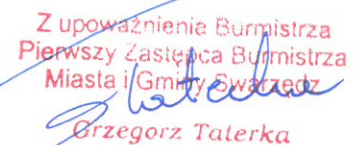 Z upoważnienia Burmistrza
Pierwszy Zastępca Burmistrza
Miasta i Gminy Swarzędz
Grzegorz Taterka